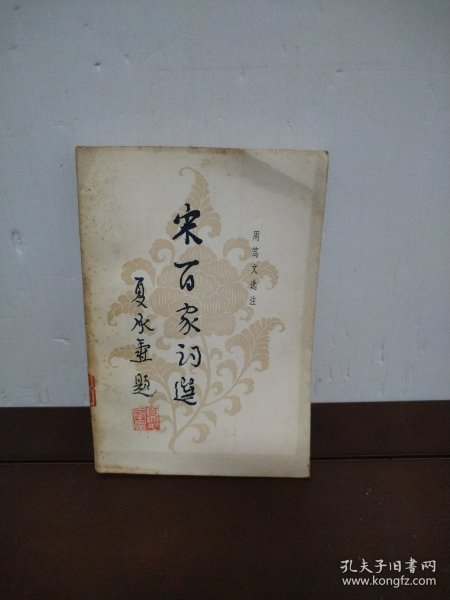 周笃文选注
宋百家词选
夏承焘题
孔夫子旧书网
www.kongfz.com